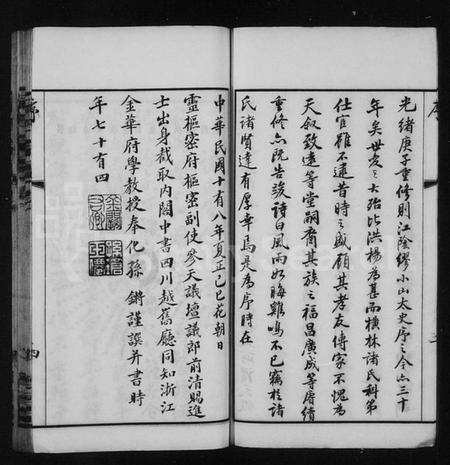 光緒庚子重修則江陰繆小山太史序之今亦三十
年矣世友之大殆比洪楊為甚而橫林諸氏科第
仕宦雖不逮昔時之盛顧其孝友傳家不愧為
天敘致遠等堂嗣裔其族之福昌廣成等賡續
重修亦既告竣詩曰風雨如晦雞鳴不已竊於諸
氏諸質達有厚幸焉是為序時在
中華民國十有八年夏正己巳花朝日
靈樞密府樞密副使參天議壇議郎前清賜進
士出身截取內閣中書四川越嶲廳同知浙江
金華府學教授奉化孫鏘謹譔并書時
年七十有四
序
四